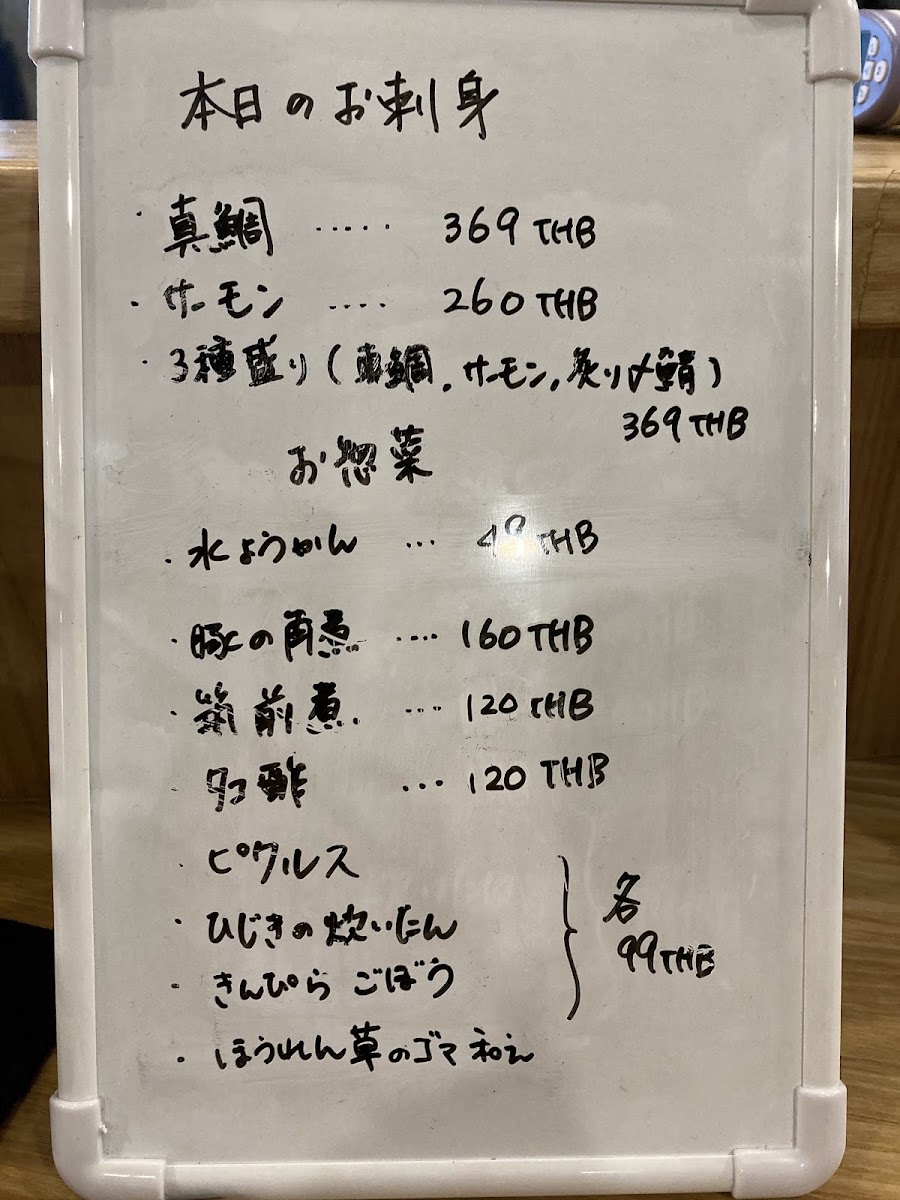 本日のお刺身
・真鯛 ‥‥‥ 369 THB
・サーモン ‥‥ 260 THB
・3種盛り(真鯛、サーモン、炙り〆鯖)
369 THB
お惣菜
・水ようかん … THB
・豚の角煮 ‥‥ 160 THB
・筑前煮 … 120 THB
タコ酢 … 120 THB
・ピクルス
・ひじきの炊いたん
・きんぴらごぼう
各
99 THB
・ほうれん草のゴマ和え